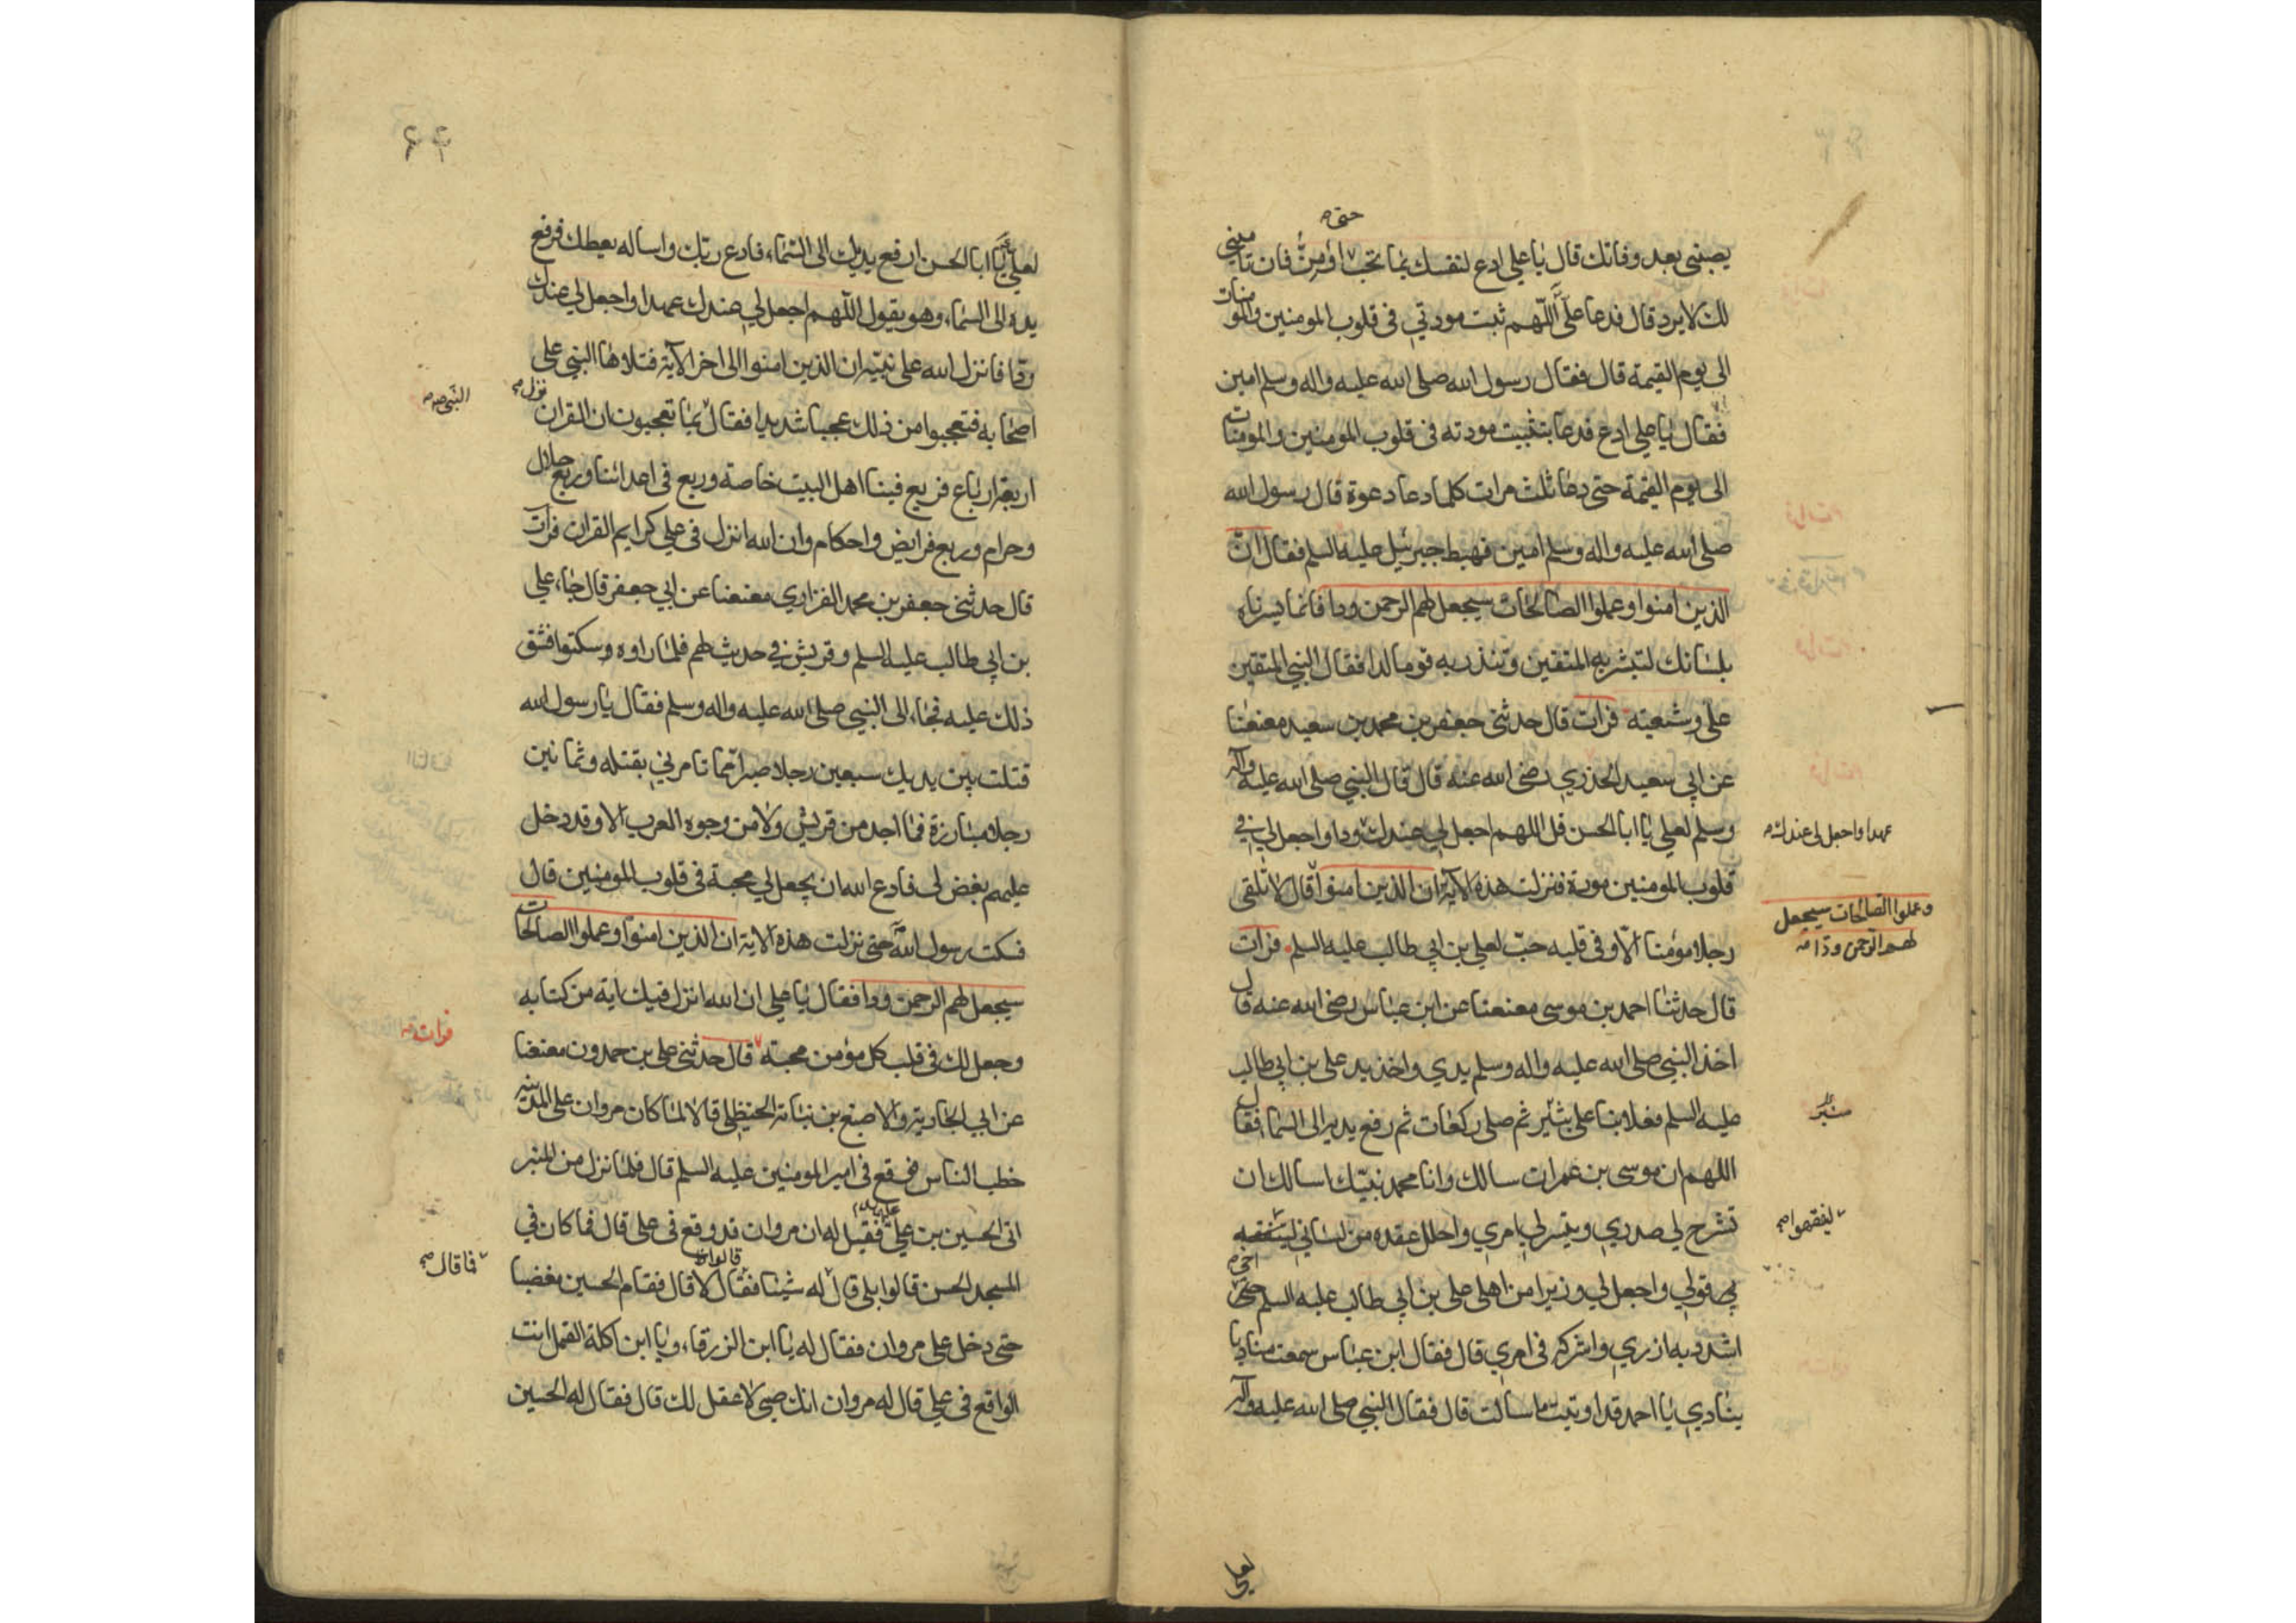 حتى
يصبنى بعد وفاتك قال يا على ادع لنفسك بما تحب اؤمن فان تامينى
لك لا يرد قال فدعا على اللهم ثبت مودتي فى قلوب المومنين والمومنات
الى يوم القيمة قال فقال رسول الله صلى الله عليه واله وسلم امين
فقال يا على ادع فدعا بتثبيت مودته فى قلوب المومنين والمومنات
الى يوم القيمة حتى دعا ثلث مرات كلما دعا دعوة قال رسول الله
صلى الله عليه واله وسلم امين فهبط جبرئيل عليه السلم فقال ان
الذين امنوا وعملوا الصالحات سيجعل لهم الرحمن ودا فانما يسرناه
بلسانك لتبشر به المتقين وتنذر به قوما لدا فقال النبي المتقين
على وشيعته فرات قال حدثنى جعفر بن محمد بن سعيد معنعنا
عن ابي سعيد الخدري رضى الله عنه قال قال النبي صلى الله عليه واله
وسلم لعلي يا ابا الحسن قل اللهم اجعل لي عندك ودا واجعل لي في
عهدا واجعل لى عندك
قلوب المومنين مودة فنزلت هذه الاية ان الذين امنوا قال لا تلقى
وعملوا الصالحات سيجعل
لهم الرحمن ودا
رجلا مؤمنا الا وفى قلبه حب لعلي بن ابي طالب عليه السلم فرات
قال حدثنا احمد بن موسى معنعنا عن ابن عباس رضى الله عنه قال
اخذ النبي صلى الله عليه واله وسلم يدي واخذ يد على بن ابي طالب
عليه السلم فعلا بنا على بثير ثم صلى ركعات ثم رفع يديه الى السما فقال
ثبير
اللهم ان موسى بن عمران سالك وانا محمد نبيك اسالك ان
تشرح لي صدري وتيسر لي امري واحلل عقدة من لساني ليتفقه
ليفقهوا
به قولي واجعل لي وزيرا من اهلى على بن ابي طالب عليه السلم اخى
اشدد به ازري واشركه فى امري قال فقال ابن عباس سمعت مناديا
ينادي يا احمد قد اوتيت ما سالت قال فقال النبي صلى الله عليه واله
لعلي
۶۴
لعلي يا ابا الحسن ارفع يديك الى السماء فادع ربك واساله يعطك فرفع
يده الى السماء وهو يقول اللهم اجعل لي عندك عهدا واجعل لي عندك
ودا فانزل الله على نبيه ان الذين امنوا الى اخر الاية فتلاها النبي على
النبى
نزل
اصحابه فتعجبوا من ذلك عجبا شديدا فقال بما تعجبون ان القران
اربعة ارباع فربع فينا اهل البيت خاصة وربع فى اعدائنا وربع حلال
وحرام وربع فرايض واحكام وان الله انزل فى علي كرايم القران فرات
قال حدثنى جعفر بن محمد الفزاري معنعنا عن ابي جعفر قال جاء علي
بن ابي طالب عليه السلم وقريش في حديث لهم فلما راوه وسكتوا فشق
ذلك عليه فجاء الى النبي صلى الله عليه واله وسلم فقال يا رسول الله
قتلت بين يديك سبعين رجلا صبرا مما تامرني بقتله وثمانين
رجلا مبارزة فما احد من قريش ولا من وجوه العرب الا وقد دخل
عليهم بغض لى فادع الله ان يجعل لي محبة فى قلوب المومنين قال
فسكت رسول الله حتى نزلت هذه الاية ان الذين امنوا وعملوا الصالحات
سيجعل لهم الرحمن ودا فقال يا على ان الله انزل فيك اية من كتابه
وجعل لك فى قلب كل مؤمن محبة قال حدثنى على بن حمدون معنعنا
فرات
عن ابي الجارية والاصبغ بن نباتة الحنظلى قالا لما كان مروان على المدينة
خطب الناس فوقع فى امير المومنين عليه السلم قال فلما نزل من المنبر
اتى الحسين بن علي عليه السلم فقيل له ان مروان قد وقع فى على قال فما كان في
قالوا
المسجد الحسن قالوا بلى قال له شيئا فقال لا قال فقام الحسين مغضبا
فما قال
حتى دخل على مروان فقال له يا ابن الزرقاء ويا ابن اكلة القمل انت
الواقع فى علي قال له مروان انك صبى لا عقل لك قال فقال له الحسين